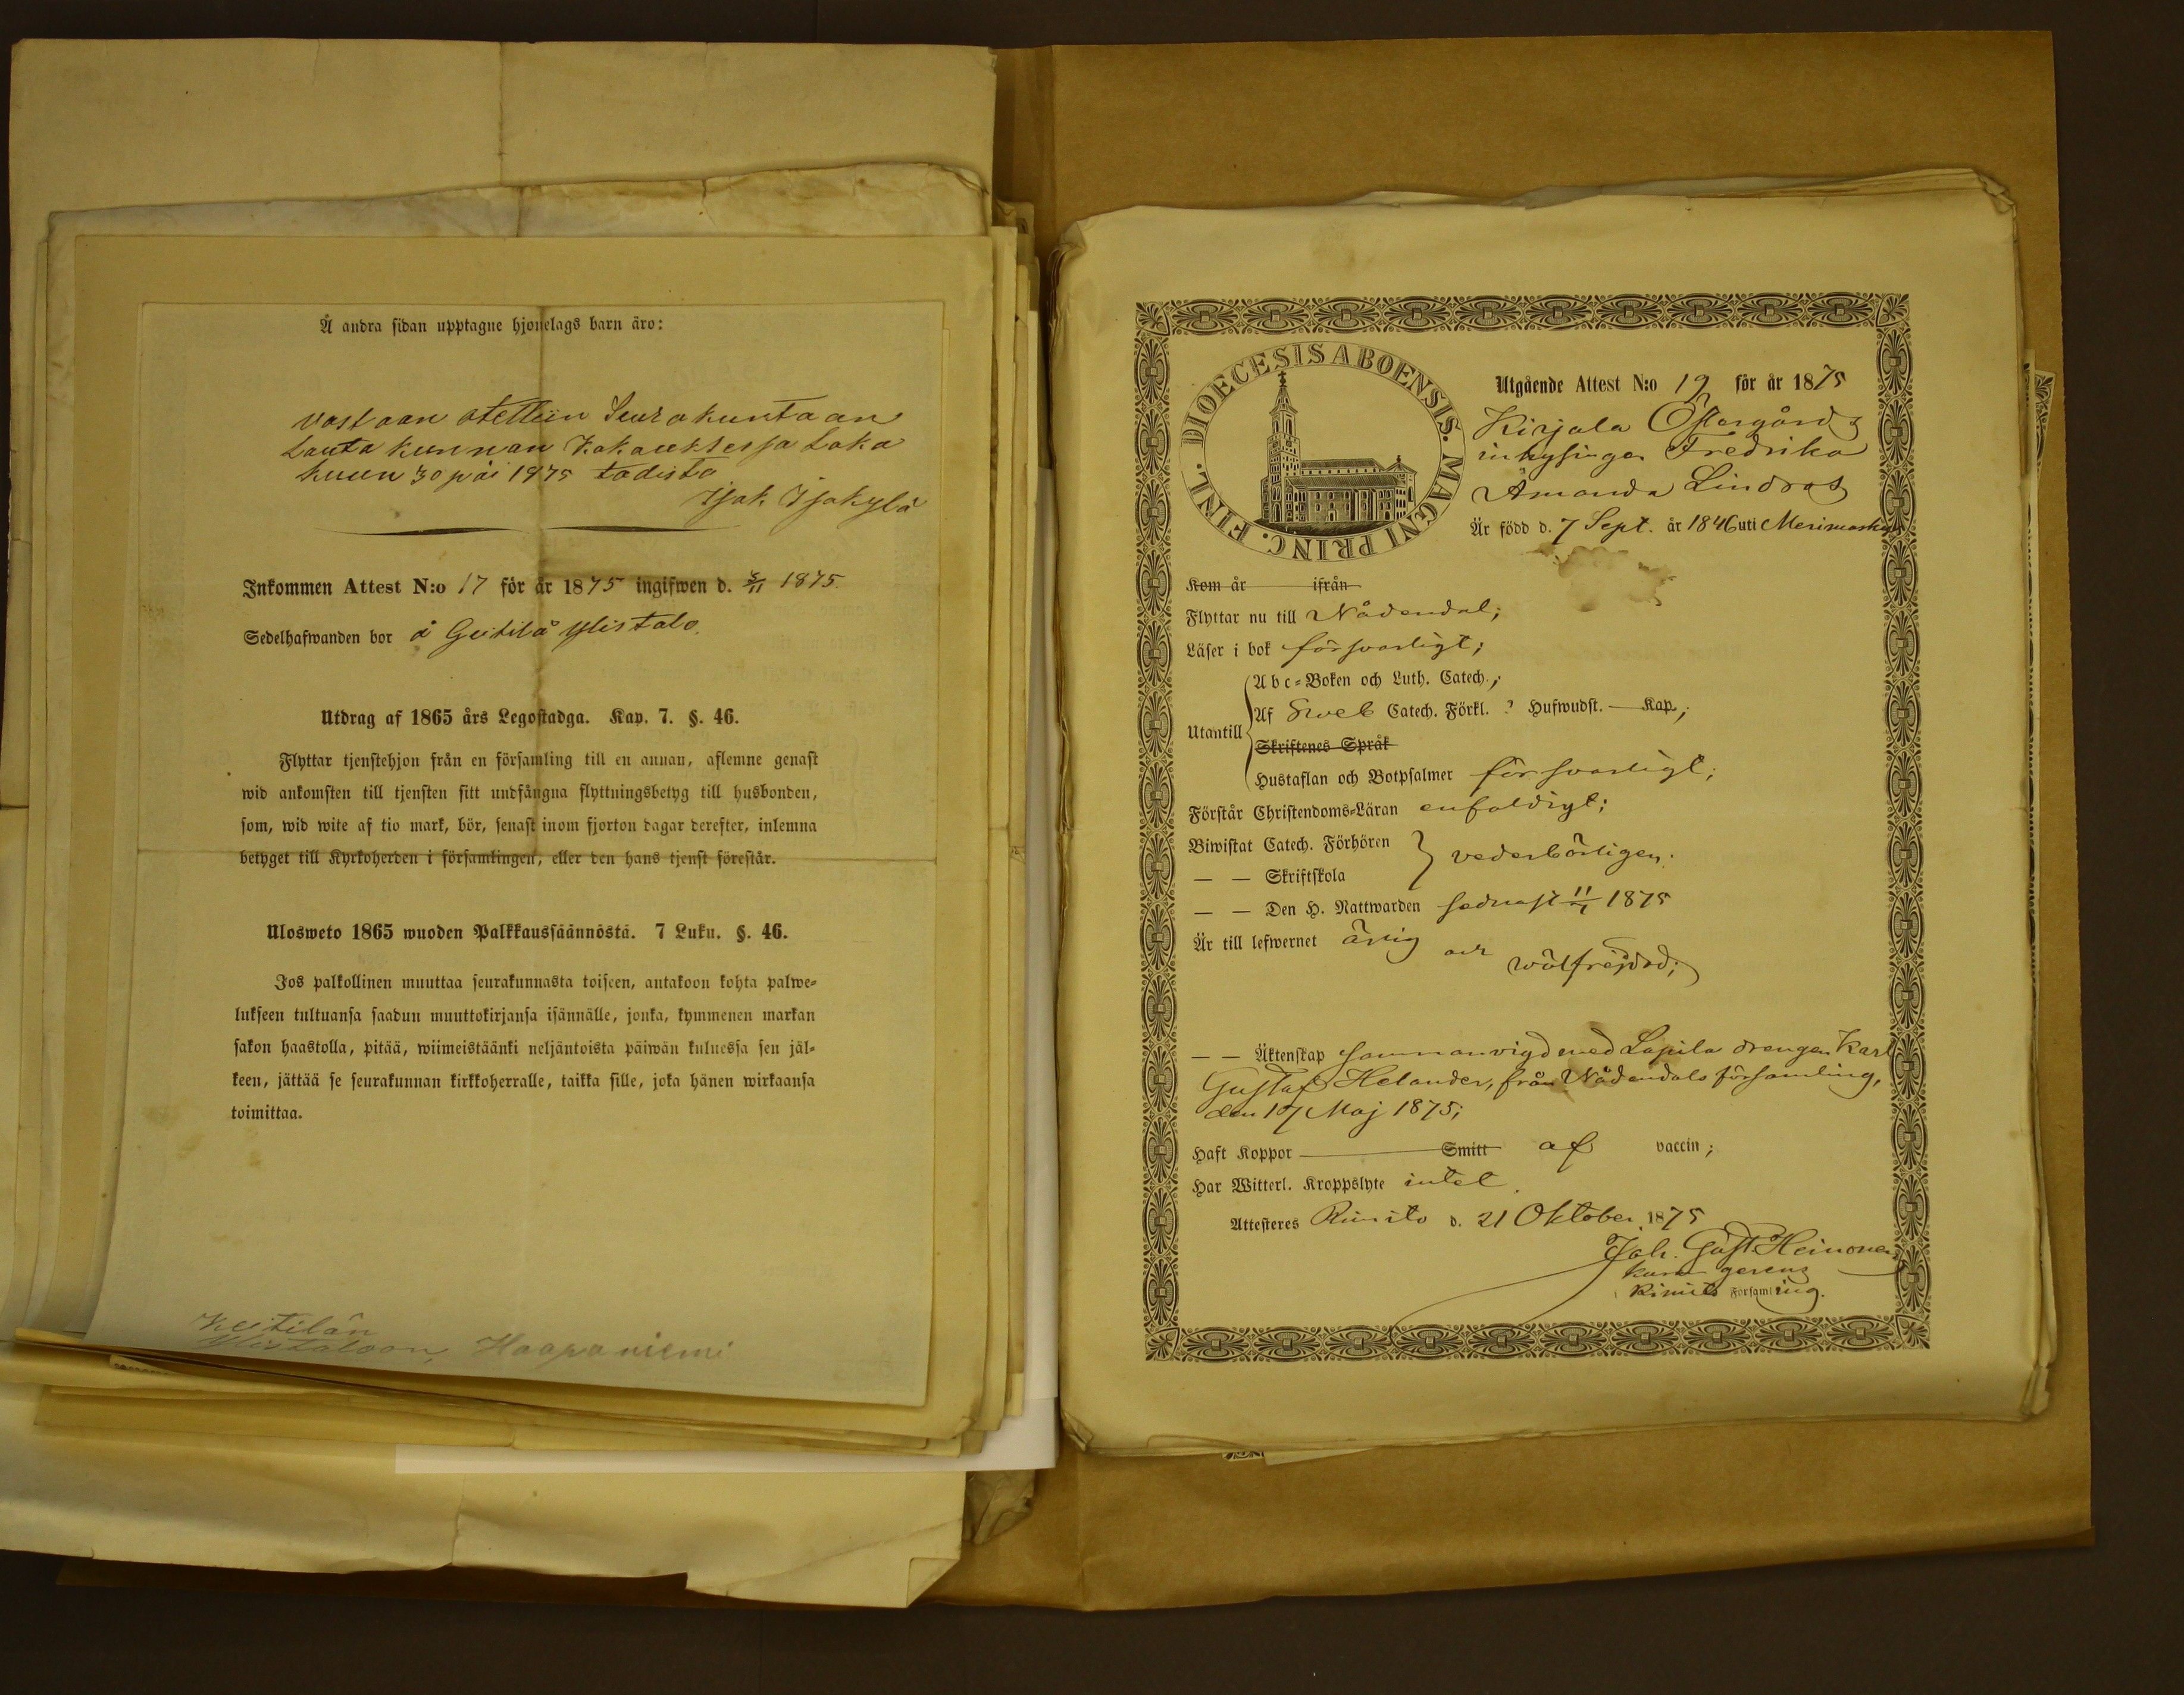 Å andra sidan upptagne hjonelags barn äro:
vastaan otettiin Seurakuntaan
Lautakunnan Kokouksessa Loka
kuun 30 päi 1875 todista
Isak Isokylä
Inkommen Attest N:o 17 för år 1875 ingifwen d. 3/11 1875.
Sedelhafwanden bor å Geitilä Ylistalo.
Utdrag af 1865 års Legostadga. Kap. 7. §. 46.
Flyttar tjenstehjon från en församling till en annan, aflemne genast
wid ankomsten till tjensten sitt undfångna flyttningsbetyg till husbonden,
som, wid wite af tio mark, bör, senast inom fjorton dagar derefter, inlemna
betyget till Kyrkoherden i församlingen, eller den hans tjenst förestår.
Ulosweto 1865 wuoden Palkkaussäännöstä. 7 Luku. §. 46.
Jos palkollinen muuttaa seurakunnasta toiseen, antakoon kohta palwe-
lukseen tultuansa saadun muuttokirjansa isännälle, jonka, kymmenen markan
sakon haastolla, pitää, wiimeistäänki neljäntoista päiwän kuluessa sen jäl-
keen, jättää se seurakunnan kirkkoherralle, taikka sille, joka hänen wirkaansa
toimittaa.
Keitilän
Ylistaloon, Haapaniemi
DIOECESIS ABOENSIS. MAGNI PRINC. FINL.
Utgående Attest N:o 19 för år 1875
Kirjala Östergårds
inhysinge Fredrika
Amanda Lindros
Är född d. 7 Sept. år 1846 uti Merimasku
Kom år ifrån
Flyttar nu till Nådendal;
Läser i bok försvarligt;
Abc-Boken och Luth. Catech.;
Af Sveb Catech. Förkl. ? Hufwudst. — Kap.;
Utantill
Skriftenes Språk
Hustaflan och Botpsalmer försvarligt;
Förstår Christendoms-Läran enfaldigt;
Biwistat Catech. Förhören
vederbörligen.
— — Skriftskola
— — Den H. Nattwarden sednast 11/7 1875
Är till lefwernet ärlig och
wälfrejdad;
— — Äktenskap sammanvigd med Lapila drengen Karl
Gustaf Helander, från Nådendals församling,
den 17 Maj 1875;
Haft Koppor — Smitt af vaccin;
Har Witterl. Kroppslyte intet.
Attesteres Rimito d. 21 Oktober 1875
Joh. Gust. Heinonen
gerens
Rimito Församling.